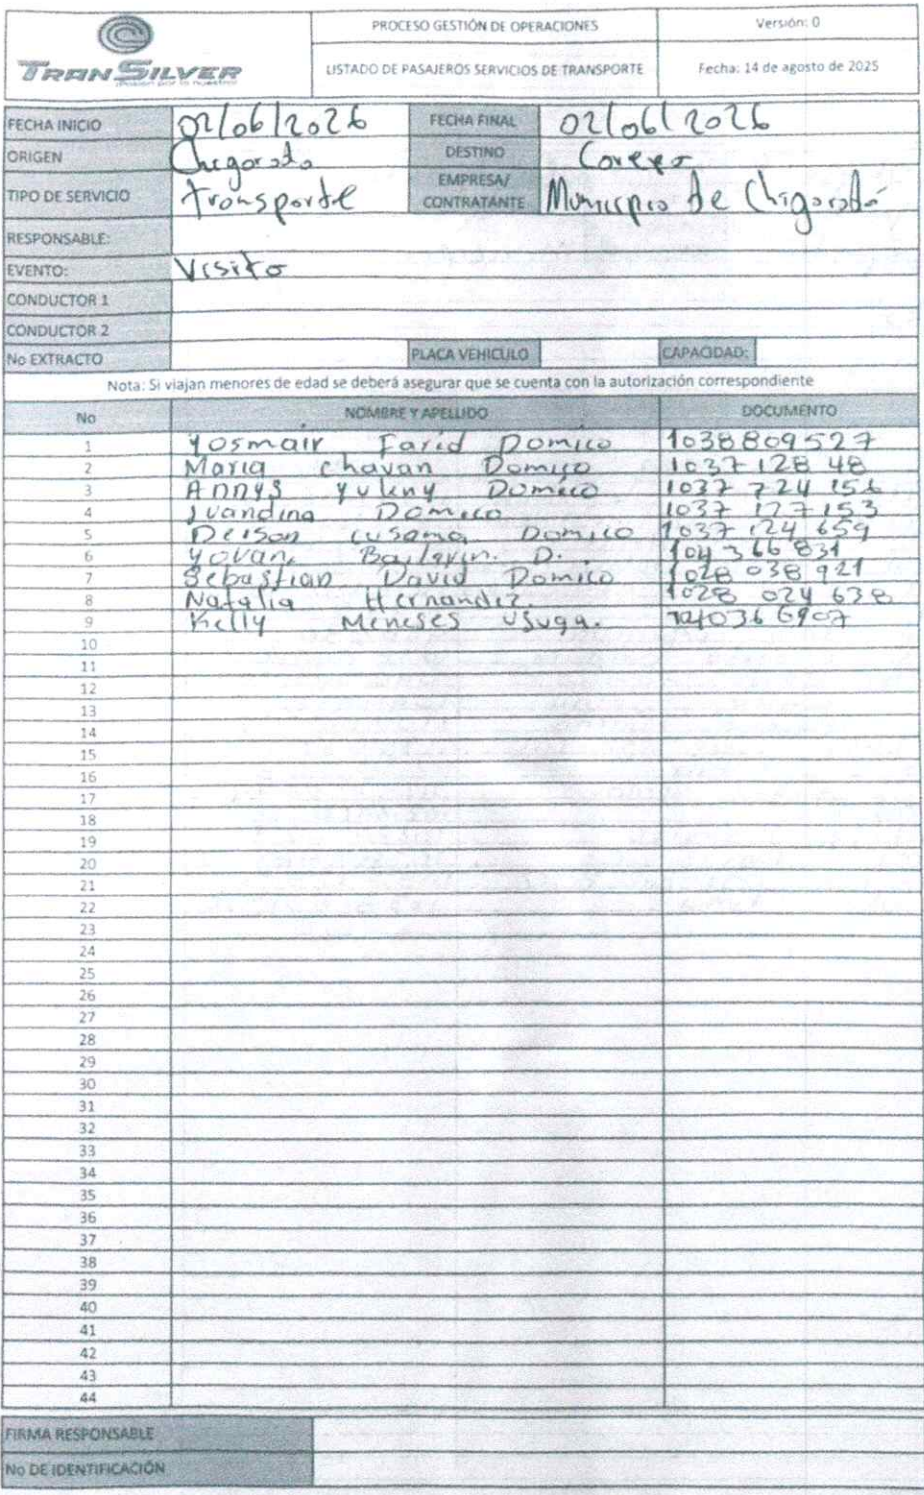 TRANSILVER
PROCESO GESTIÓN DE OPERACIONES
Versión: 0
LISTADO DE PASAJEROS SERVICIOS DE TRANSPORTE
Fecha: 14 de agosto de 2025
FECHA INICIO 02/06/2026 FECHA FINAL 02/06/2026
ORIGEN Chigorodo DESTINO Carepa
TIPO DE SERVICIO transporte EMPRESA/ CONTRATANTE Municipio de Chigorodó
RESPONSABLE:
EVENTO: Visita
CONDUCTOR 1
CONDUCTOR 2
No EXTRACTO PLACA VEHICULO CAPACIDAD:
Nota: Si viajan menores de edad se deberá asegurar que se cuenta con la autorización correspondiente
No NOMBRE Y APELLIDO DOCUMENTO
1 Yosmair Farid Domico 1038809527
2 Maria chavari Domico 1037 128 48
3 Annys Yuleny Domico 1037 724 156
4 Juandina Domico 1037 127 153
5 Deison cusama Domico 1037 124 659
6 Yovani Bailarin. D. 104 366 831
7 Sebastian David Domico 1028 038 921
8 Natalia Hernandez. 1028 024 638
9 Kelly Meneses Usuga. 6907
10
11
12
13
14
15
16
17
18
19
20
21
22
23
24
25
26
27
28
29
30
31
32
33
34
35
36
37
38
39
40
41
42
43
44
FIRMA RESPONSABLE
No DE IDENTIFICACIÓN